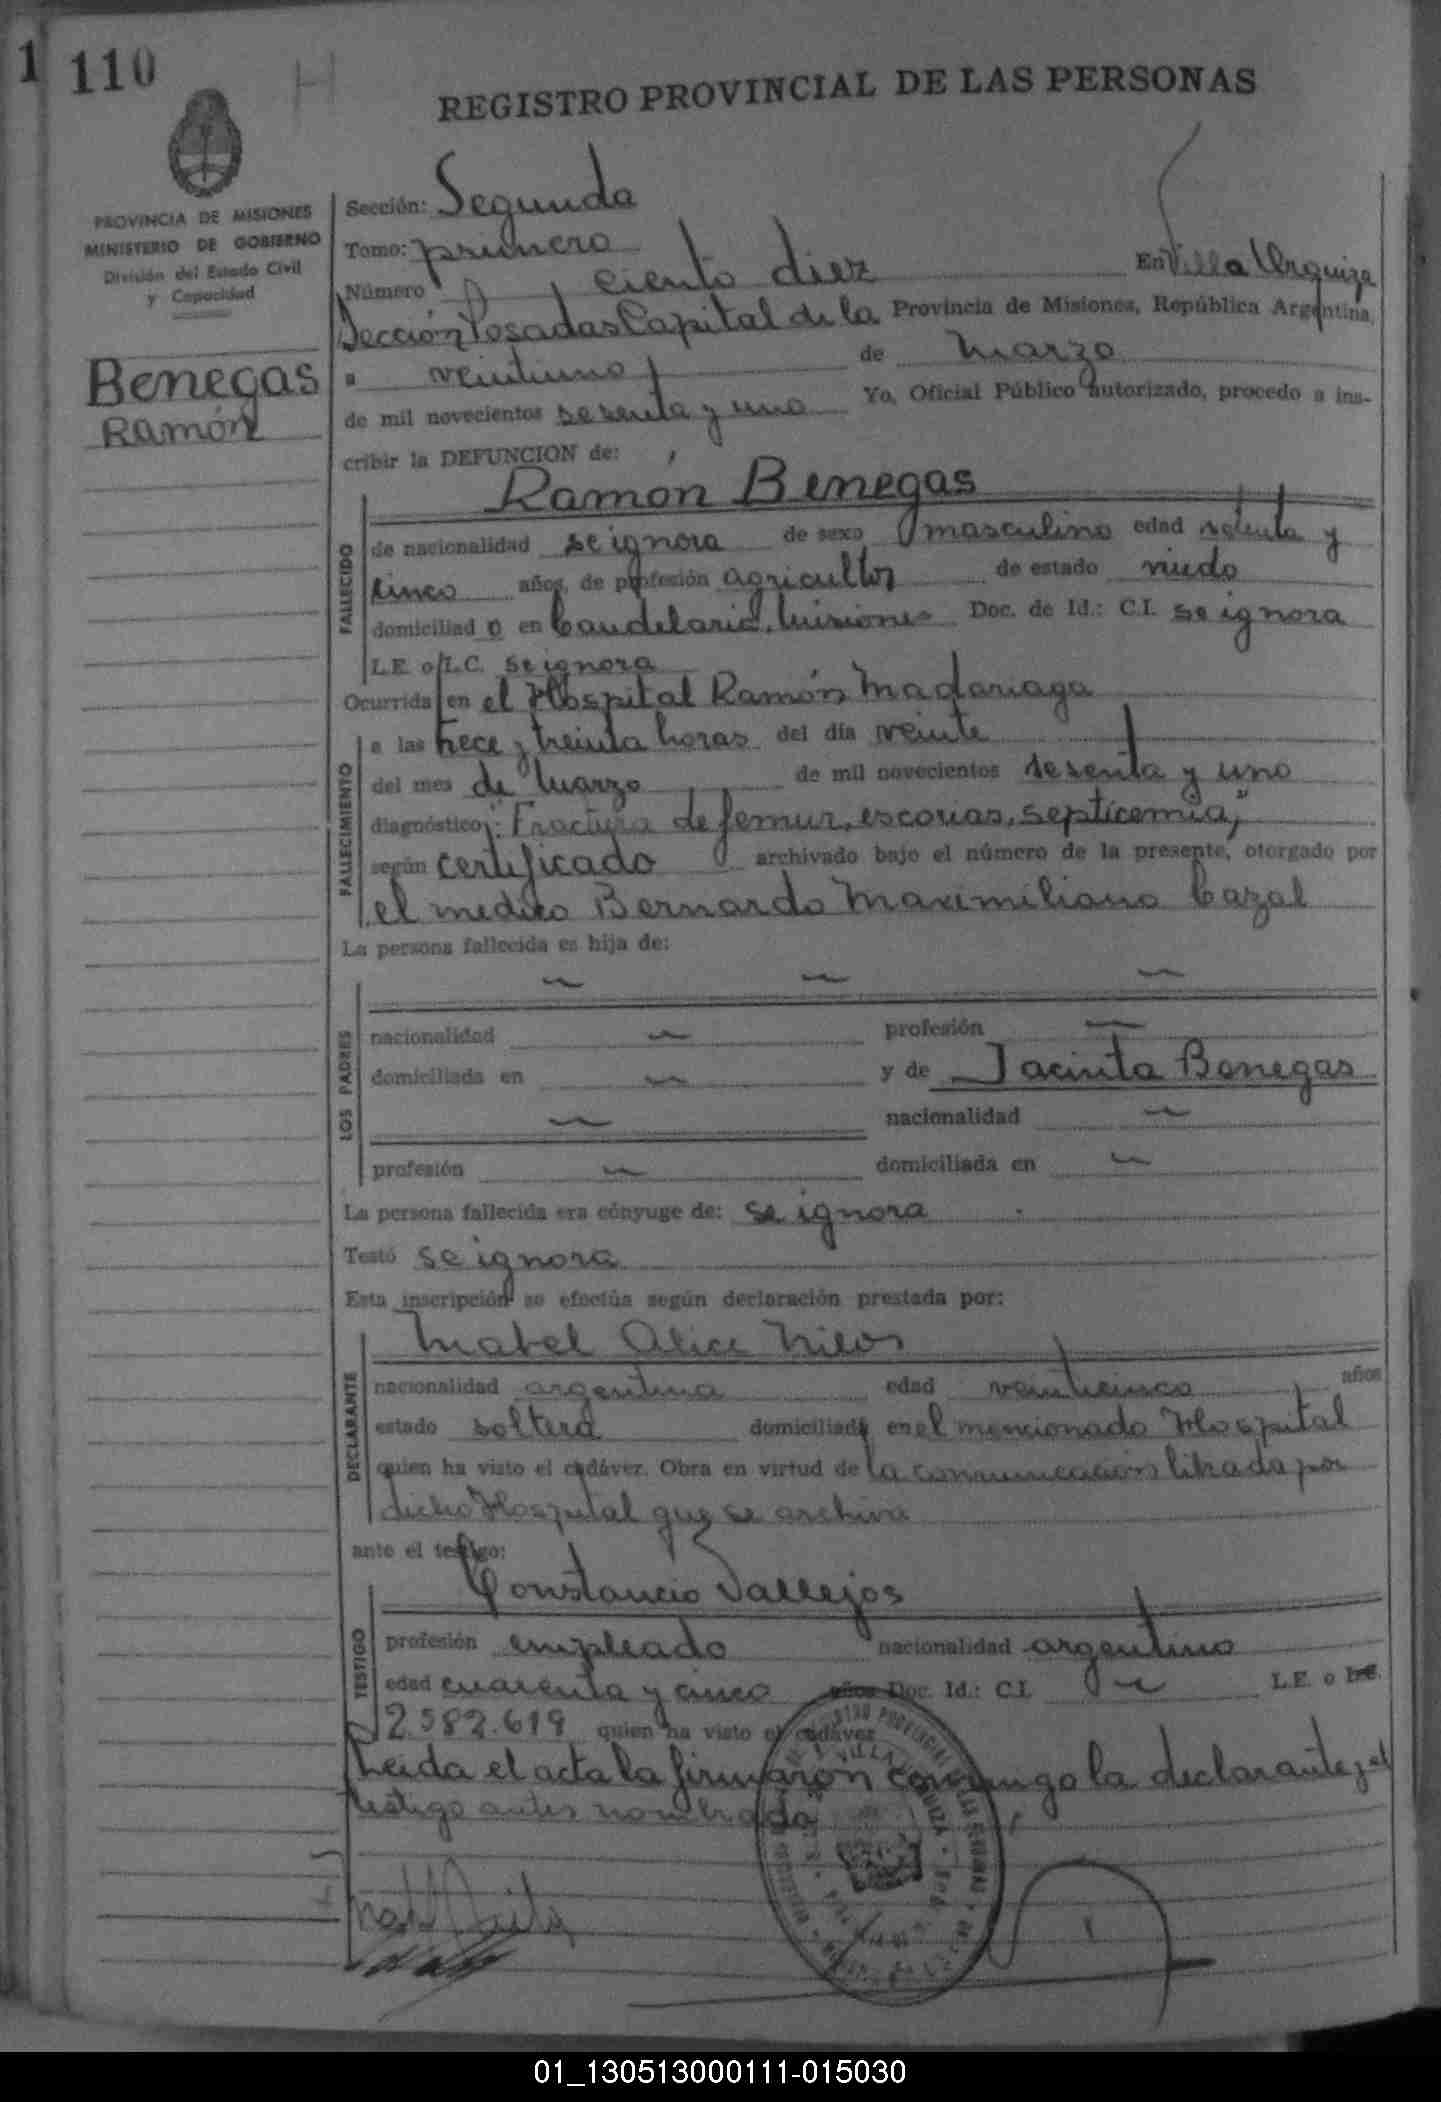 1 110 H
REGISTRO PROVINCIAL DE LAS PERSONAS
PROVINCIA DE MISIONES
MINISTERIO DE GOBIERNO
División del Estado Civil
y Capacidad
Benegas
Ramón
Sección: Segunda
Tomo: primero
Número ciento diez En Villa Urquiza
Sección Posadas Capital de la Provincia de Misiones, República Argentina,
a veintiuno de Marzo
de mil novecientos sesenta y uno Yo, Oficial Público autorizado, procedo a ins-
cribir la DEFUNCION de:
Ramón Benegas
FALLECIDO
de nacionalidad se ignora de sexo masculino edad setenta y
cinco años, de profesión agricultor de estado viudo
domiciliad o en Candelaria, Misiones Doc. de Id.: C.I. se ignora
L.E. o L.C. se ignora
Ocurrida en el Hospital Ramón Madariaga
FALLECIMIENTO
a las trece y treinta horas del día veinte
del mes de Marzo de mil novecientos sesenta y uno
diagnóstico: "Fractura de femur, escorias, septicemia,"
según certificado archivado bajo el número de la presente, otorgado por
el medico Bernardo Maximiliano Cazal
La persona fallecida es hija de:
LOS PADRES
nacionalidad profesión
domiciliada en y de Jacinta Benegas
nacionalidad
profesión domiciliada en
La persona fallecida era cónyuge de: se ignora
Testó se ignora
Esta inscripción se efectúa según declaración prestada por:
Mabel Alice
DECLARANTE
nacionalidad argentina edad veinticinco años
estado soltera domiciliada en el mencionado Hospital
quien ha visto el cadáver. Obra en virtud de la comunicación librada por
dicho Hospital que se archiva
ante el testigo:
Constancio Vallejos
TESTIGO
profesión empleado nacionalidad argentino
edad cuarenta y cinco años Doc. Id.: C.I. L.E. o L.C.
2.582.619 quien ha visto el cadáver
Leida el acta la firmaron conmigo la declarante y el
testigo antes nombrado
01_130513000111-015030